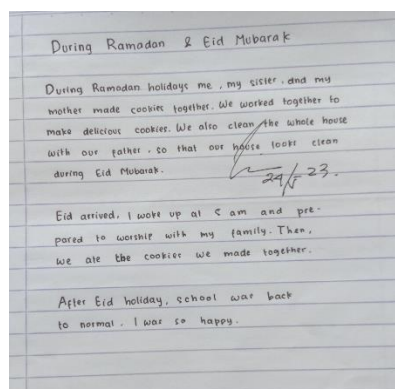 During Ramadan & Eid Mubarak
During Ramadan holidays me, my sister, and my
mother made cookies together. We worked together to
make delicious cookies. We also clean the whole house
with our father. So that our house looks clean
during Eid Mubarak.
24/5 23.
Eid arrived. I woke up at 5 am and pre-
pared to worship with my family. Then,
we ate the cookies we made together.
After Eid holiday, school was back
to normal. I was so happy.